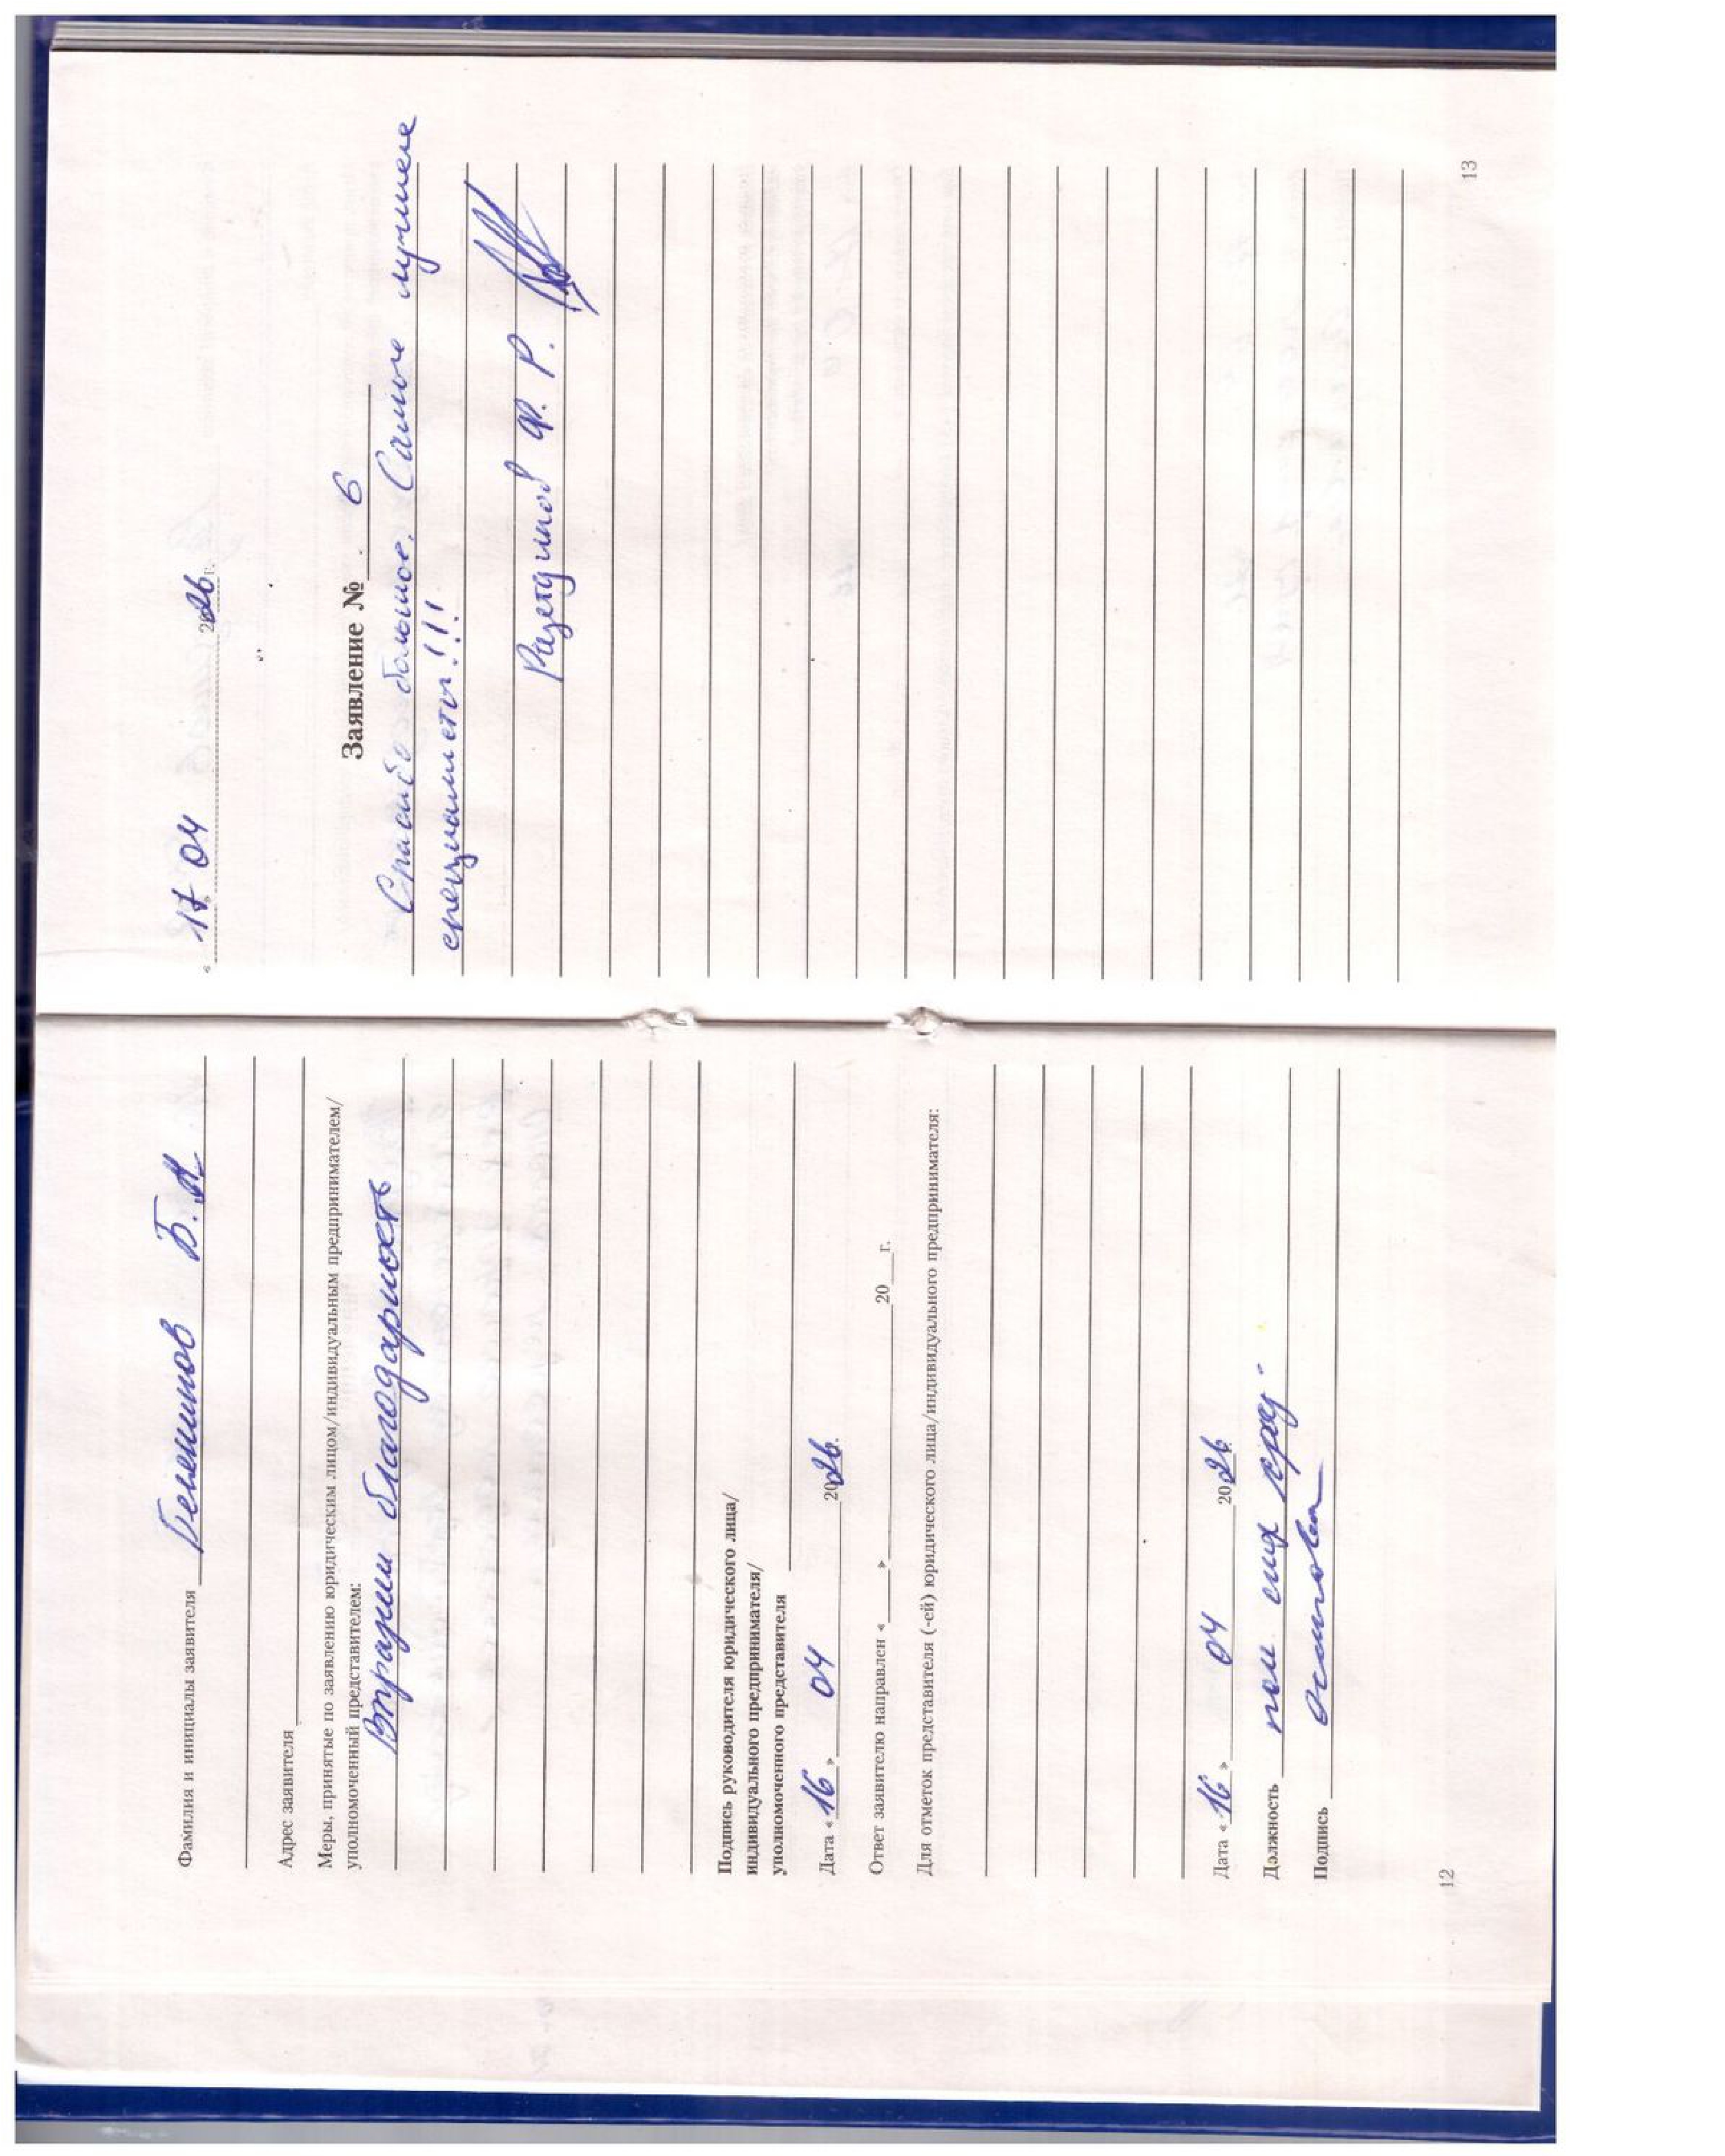 Фамилия и инициалы заявителя Б.
Адрес заявителя
Меры, принятые по заявлению юридическим лицом/индивидуальным предпринимателем/
уполномоченный представителем:
благодарность
Подпись руководителя юридического лица/
индивидуального предпринимателя/
уполномоченного представителя
Дата «16» 04 2026.
Ответ заявителю направлен «___»____________20___г.
Для отметок представителя (-ей) юридического лица/индивидуального предпринимателя:
Дата «16» 04 2026
Должность
Подпись
12
« 17 » 04 2026 г.
Заявление № 6
Спасибо большое. Самые лучшие
специалисты!!!
Ф. Р.
13